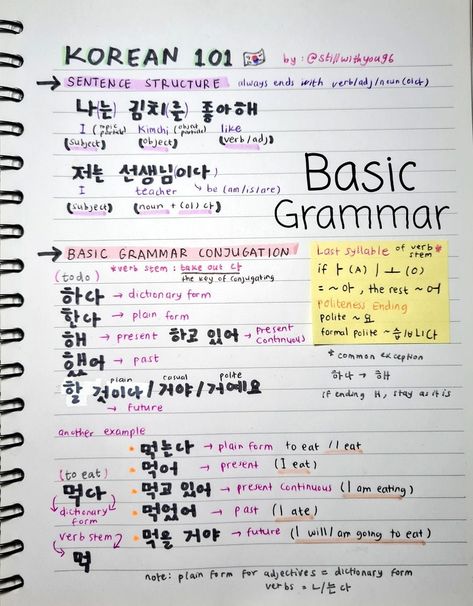 KOREAN 101 🇰🇷 by: @stillwithyou96
→ SENTENCE STRUCTURE always ends with verb/adj/noun(이다)
나(는) 김치(를) 좋아해
I (topic particle) Kimchi (object particle) like
(subject) (object) (verb/adj)
저는 선생님이다
I teacher be (am/is/are)
(subject) (noun + (이) 다)
Basic
Grammar
→ BASIC GRAMMAR CONJUGATION
*verb stem : take out 다
the key of conjugating
(to do)
하다 → dictionary form
한다 → plain form
해 → present 하고 있어 → present continuous
했어 → past
plain casual polite
할 것이다/거야/거예요
→ future
Last syllable of verb stem *
if ㅏ (A) | ㅗ (O)
= ~아, the rest ~어
Politeness Ending
polite ~요
formal polite ~습/ㅂ니다
* common exception
하다 → 해
if ending H, stay as it is
another example
• 먹는다 → plain form to eat / I eat
• 먹어 → present (I eat)
(to eat)
먹다 • 먹고 있어 → present continuous (I am eating)
dictionary form
• 먹었어 → past (I ate)
verb stem
• 먹을 거야 → future (I will/I am going to eat)
먹
note: plain form for adjectives = dictionary form
verbs = ㄴ/는다